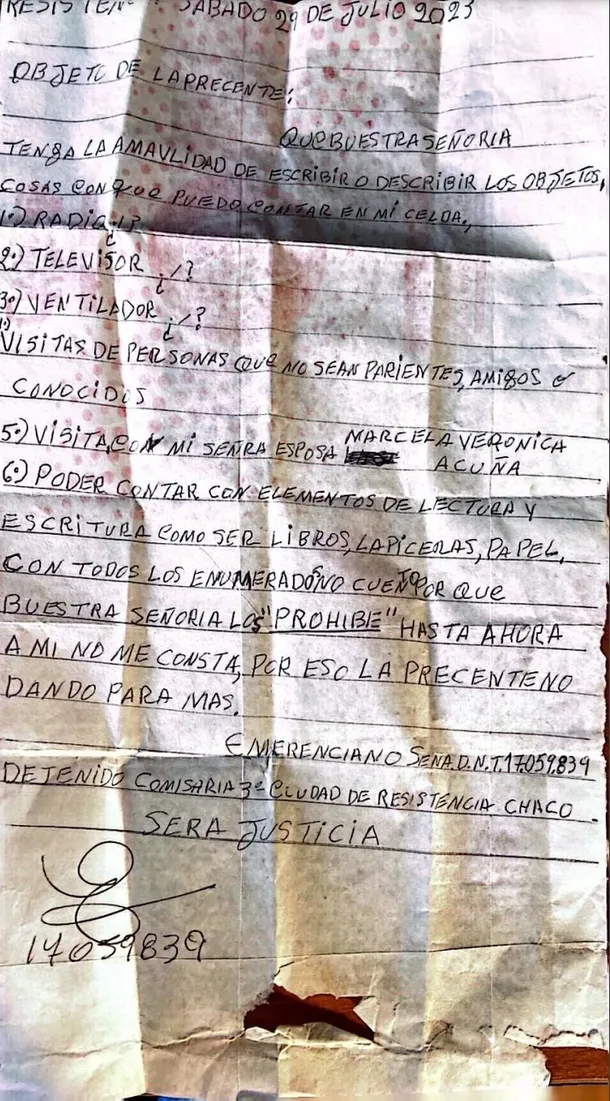 RESISTEN SABADO 29 DE JULIO 2023
OBJETO DE LA PRECENTE:
QUE BUESTRA SEÑORIA
TENGA LA AMAVLIDAD DE ESCRIBIR O DESCRIBIR LOS OBJETOS,
COSAS CON QUE PUEDO CONTAR EN MI CELDA.,
1º) RADIO ¿?
2º) TELEVISOR ¿/?
3º) VENTILADOR ¿/?
VISITAS DE PERSONAS QUE NO SEAN PARIENTES, AMIGOS O
CONOCIDOS
5º) VISITA, CON MI SEÑRA ESPOSA MARCELA VERONICA
ACUÑA
6º) PODER CONTAR CON ELEMENTOS DE LECTURA Y
ESCRITURA COMO SER LIBROS, LAPICERAS, PAPEL,
CON TODOS LOS ENUMERADOS NO CUENTO POR QUE
BUESTRA SEÑORIA LOS "PROHIBE" HASTA AHORA
A MI NO ME CONSTA, POR ESO LA PRECENTE NO
DANDO PARA MAS.
EMERENCIANO SENA D.N.I. 17059839
DETENIDO COMISARIA 3º CIUDAD DE RESISTENCIA CHACO.
SERA JUSTICIA
17059839